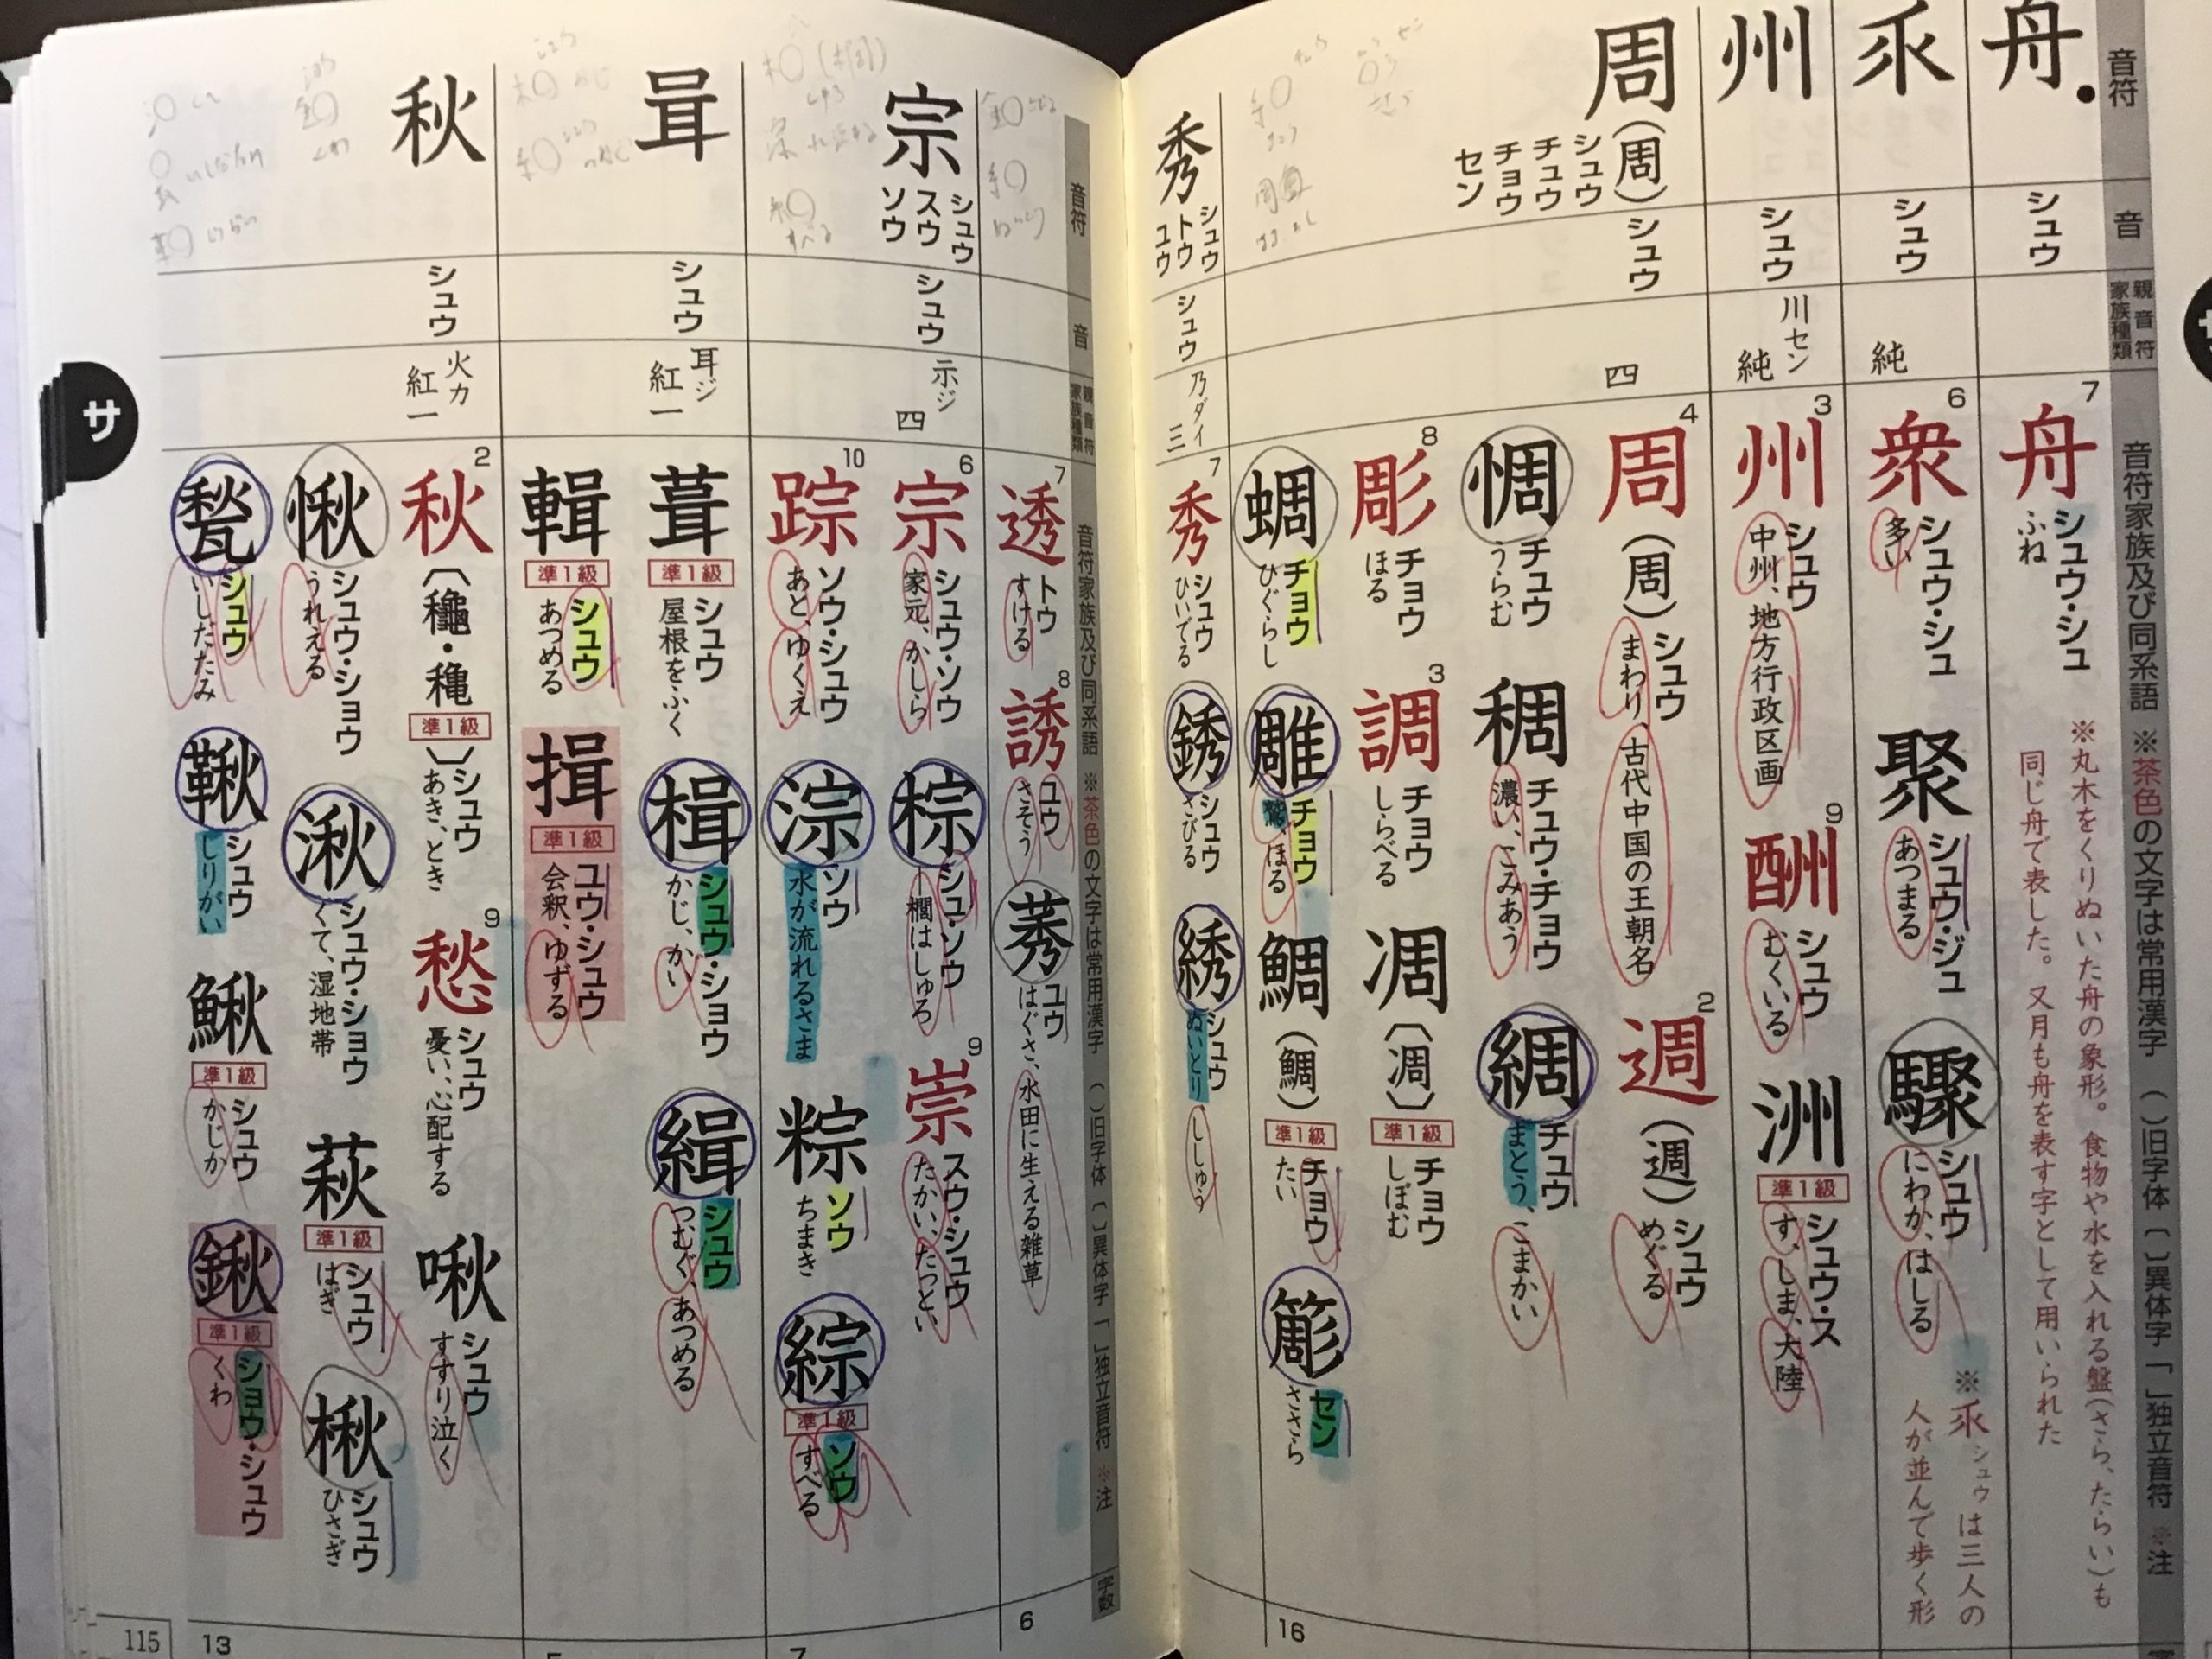 音符
音
親音符
家族種類
音符家族及び同系語 ※茶色の文字は常用漢字 ( )旧字体 〔 〕異体字 「 」独立音符 ※注
舟
シュウ
7
舟
シュウ・シュ
ふね
※丸木をくりぬいた舟の象形。食物や水を入れる盤(さら、たらい)も
同じ舟で表した。又月も舟を表す字として用いられた
乑
シュウ
純
6
衆
シュウ・シュ
多い
聚
シュウ・ジュ
あつまる
驟
シュウ
にわか、はしる
※乑シュウは三人の
人が並んで歩く形
州
シュウ
川セン
純
3
州
シュウ
中州、地方行政区画
9
酬
シュウ
むくいる
洲
準1級
シュウ・ス
す、しま、大陸
周(周)
シュウ
チュウ
チョウ
セン
シュウ
四
4
周(周)
シュウ
まわり、古代中国の王朝名
2
週(週)
シュウ
めぐる
惆
チュウ
うらむ
稠
チュウ・チョウ
濃い、こみあう
綢
チュウ
まとう、こまかい
8
彫
チョウ
ほる
3
調
チョウ
しらべる
凋〔凋〕
準1級
チョウ
しぼむ
蜩
チョウ
ひぐらし
雕
チョウ
鷲、ほる
鯛(鯛)
準1級
チョウ
たい
簓
セン
ささら
16
秀
シュウ
トウ
ユウ
シュウ
乃ダイ
三
7
秀
シュウ
ひいでる
銹
シュウ
さびる
綉
シュウ
ぬいとり
ししゅう
音符
音
親音符
家族種類
音符家族及び同系語 ※茶色の文字は常用漢字 ( )旧字体 〔 〕異体字 「 」独立音符 ※注
字数
7
透
トウ
すける
8
誘
ユウ
さそう
莠
ユウ
はぐさ、水田に生える雑草
6
宗
シュウ
スウ
ソウ
シュウ
示ジ
四
6
宗
シュウ・ソウ
家元、かしら
棕
シュ・ソウ
―櫚はしゅろ
9
崇
スウ・シュウ
たかい、たっとい
10
踪
ソウ・シュウ
あと、ゆくえ
淙
ソウ
水が流れるさま
粽
ソウ
ちまき
綜
準1級
ソウ
すべる
7
咠
シュウ
耳ジ
紅一
葺
準1級
シュウ
屋根をふく
楫
シュウ・ショウ
かじ、かい
緝
シュウ
つむぐ、あつめる
輯
準1級
シュウ
あつめる
揖
準1級
ユウ・シュウ
会釈、ゆずる
5
秋
シュウ
火カ
紅一
2
秋〔龝・穐 準1級〕
シュウ
あき、とき
9
愁
シュウ
憂い、心配する
啾
シュウ
すすり泣く
愀
シュウ・ショウ
うれえる
湫
シュウ・ショウ
くて、湿地帯
萩
準1級
シュウ
はぎ
楸
シュウ
ひさぎ
甃
シュウ
いしだたみ
鞦
シュウ
しりがい
鰍
準1級
シュウ
かじか
鍬
準1級
ショウ・シュウ
くわ
13
サ
115